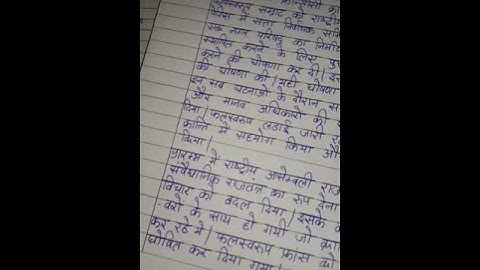 फलस्वरूप सम्राट को राष्ट्रीय
पेरिस में सत्ता निर्वाचक
एक नगर परिषद् का निर्माण
स्थापित करने के लिस
करने की घोषणा कर दी।
की घोषणा की। यही घोषणा
इन सब घटनाओं के दौरान
और मानव अधिकारों की
दिया। फलस्वरूप लडाई जारी
क्रान्ति में सहयोग किया और
दिया।
प्रारम्भ में राष्ट्रीय असेम्बली
संवैधानिक राजतन्त्र का रुप देना
विचार को बदल दिया। इसके
के साथ हो गयी जो
कर रहे थे। फलस्वरूप फ्रांस को
घोषित कर दिया गया।